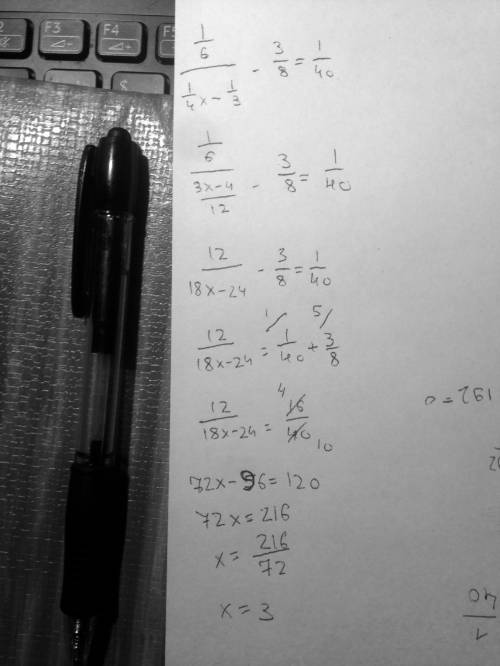 F3 F4 F5
(1/6)/(1/4 x - 1/3) - 3/8 = 1/40
(1/6)/((3x-4)/12) - 3/8 = 1/40
12/(18x-24) - 3/8 = 1/40
12/(18x-24) = 1/40 + 3/8
1 5
12/(18x-24) = 16/40
4 10
72x-96=120
72x=216
x=216/72
x=3
192=0
1/40